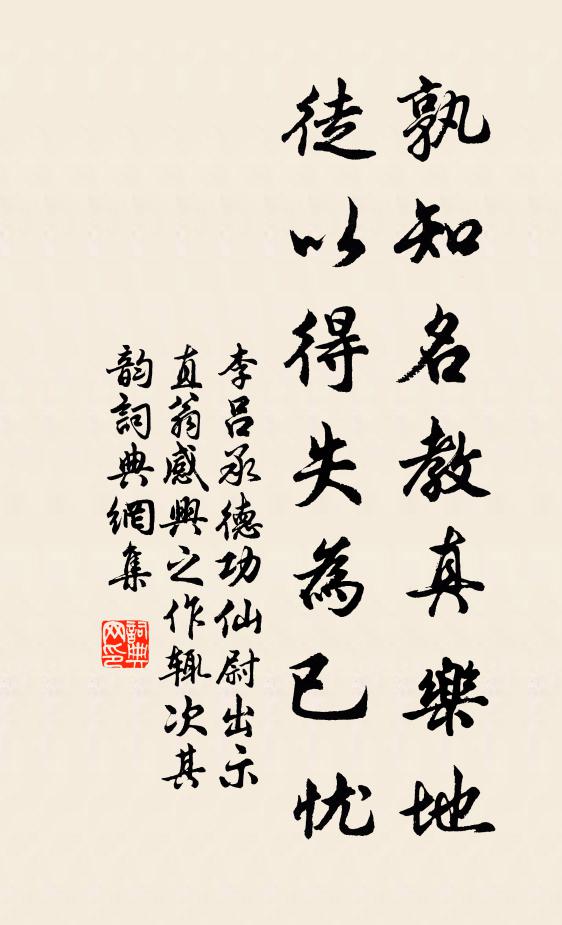 孰知名教真樂地
徒以得失為已忧
李吕承德功仙尉出示
直翁感興之作辄次其
韵詞典網集
詞典網印